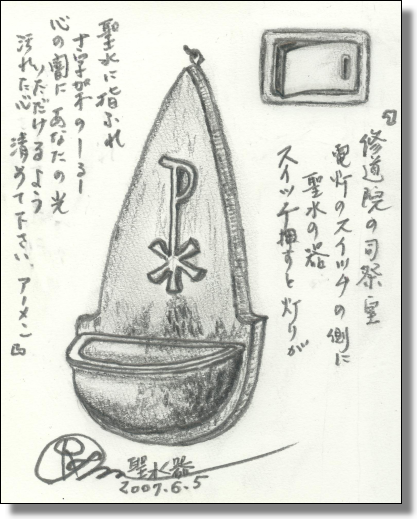 修道院の司祭室
電灯のスイッチの側に
聖水の器
スイッチ押すと灯りが
聖水に指ふれ
十字架のしるし
心の闇に あなたの光
いただけるよう
汚れた心 清めて下さい。アーメン
聖水器
2007.6.5